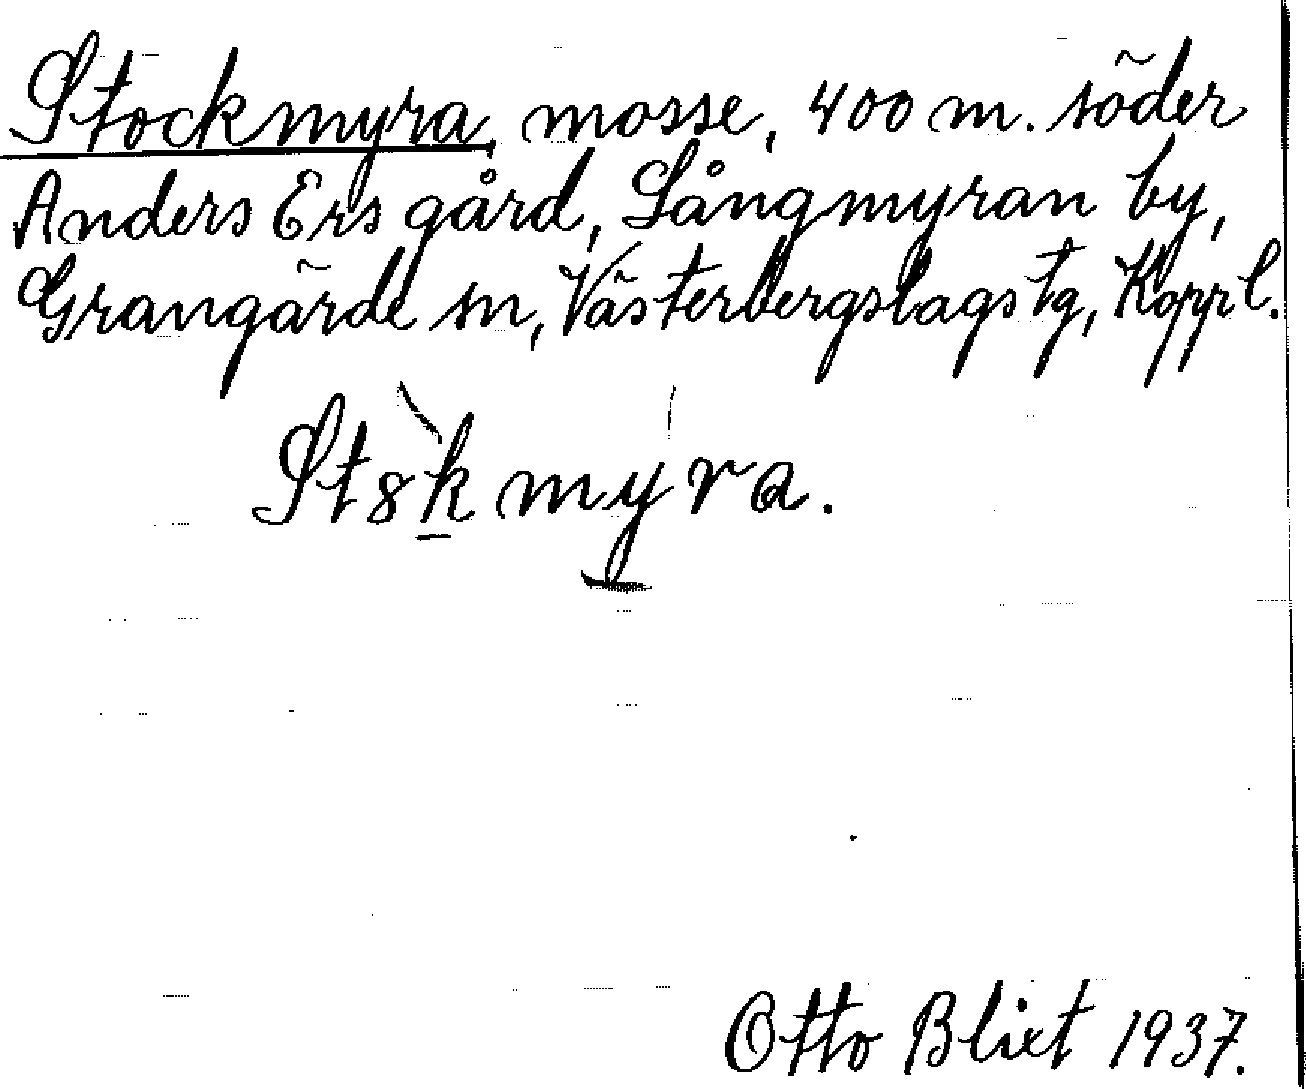 Stockmyra, mosse, 400 m. söder
Anders Ers gård, Långmyran by,
Grangärde sn, Västerbergslags tg, Kopp.l.
St8kmyra.
Otto Blixt 1937.